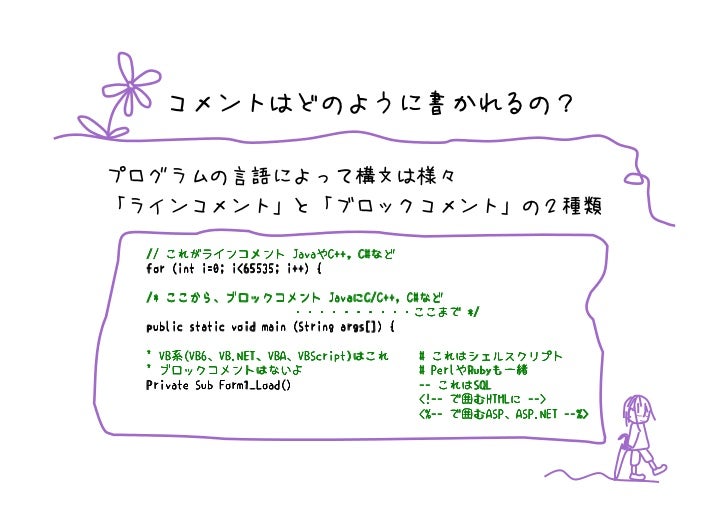 コメントはどのように書かれるの？
プログラムの言語によって構文は様々
「ラインコメント」と「ブロックコメント」の２種類
// これがラインコメント JavaやC++, C#など
for (int i=0; i<65535; i++) {
/* ここから、ブロックコメント JavaにC/C++, C#など
・・・・・・・・・・ここまで */
public static void main (String args[]) {
' VB系(VB6、VB.NET、VBA、VBScript)はこれ
' ブロックコメントはないよ
Private Sub Form1_Load()
# これはシェルスクリプト
# PerlやRubyも一緒
-- これはSQL
<!-- で囲むHTMLに -->
<%-- で囲むASP、ASP.NET --%>